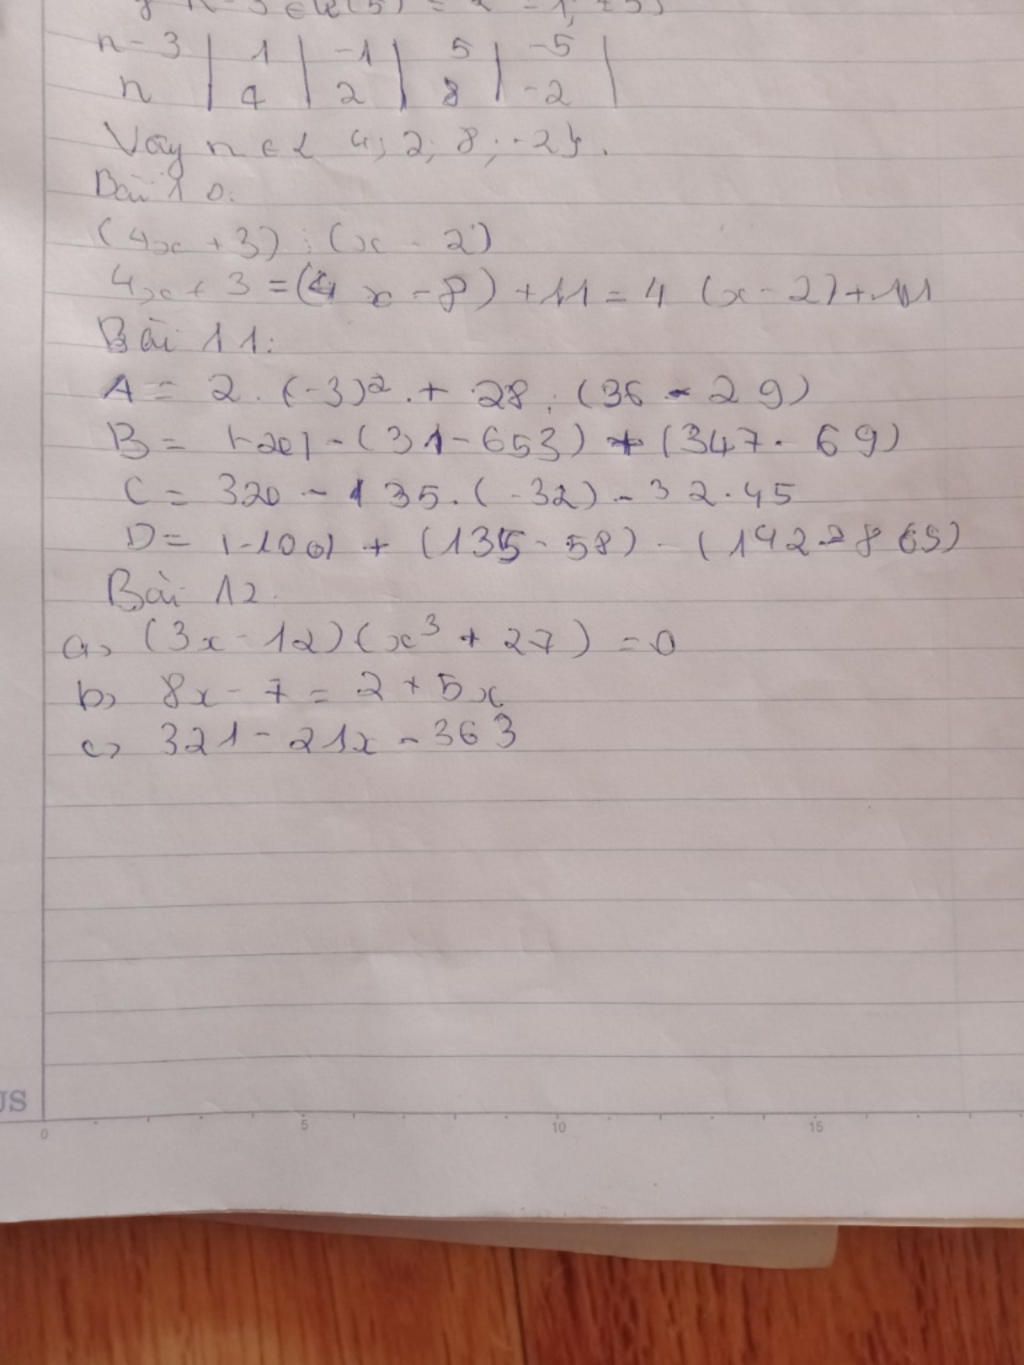 n - 3 | 1 | -1 | 5 | -5 |
n | 4 | 2 | 8 | -2 |
Vậy n ∈ { 4; 2; 8; -2}.
Bài 10:
(4x + 3) : (x - 2)
4x + 3 = (4x - 8) + 11 = 4 (x - 2) + 11
Bài 11:
A = 2 . (-3)² . + 28 : (36 - 29)
B = |-20| - (31 - 653) + (347 - 69)
C = 320 - 135 . (-32) - 32 . 45
D = |-100| + (135 - 58) - (142 - 865)
Bài 12.
a, (3x - 12) (x³ + 27) = 0
b, 8x - 7 = 2 + 5x
c, 321 - 21x - 363
US
0 5 10 15